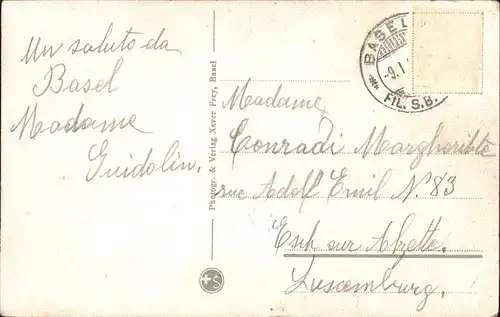 Un saluto da
Basel
Madame
Guidolin.
Photogr. & Verlag Xaver Frey, Basel
BASEL
-9.I.
FIL. S.B.
Madame
Conradi Margheritte
rue Adolf Emil N. 83
Esch sur Alzette.
Luxemburg.
S